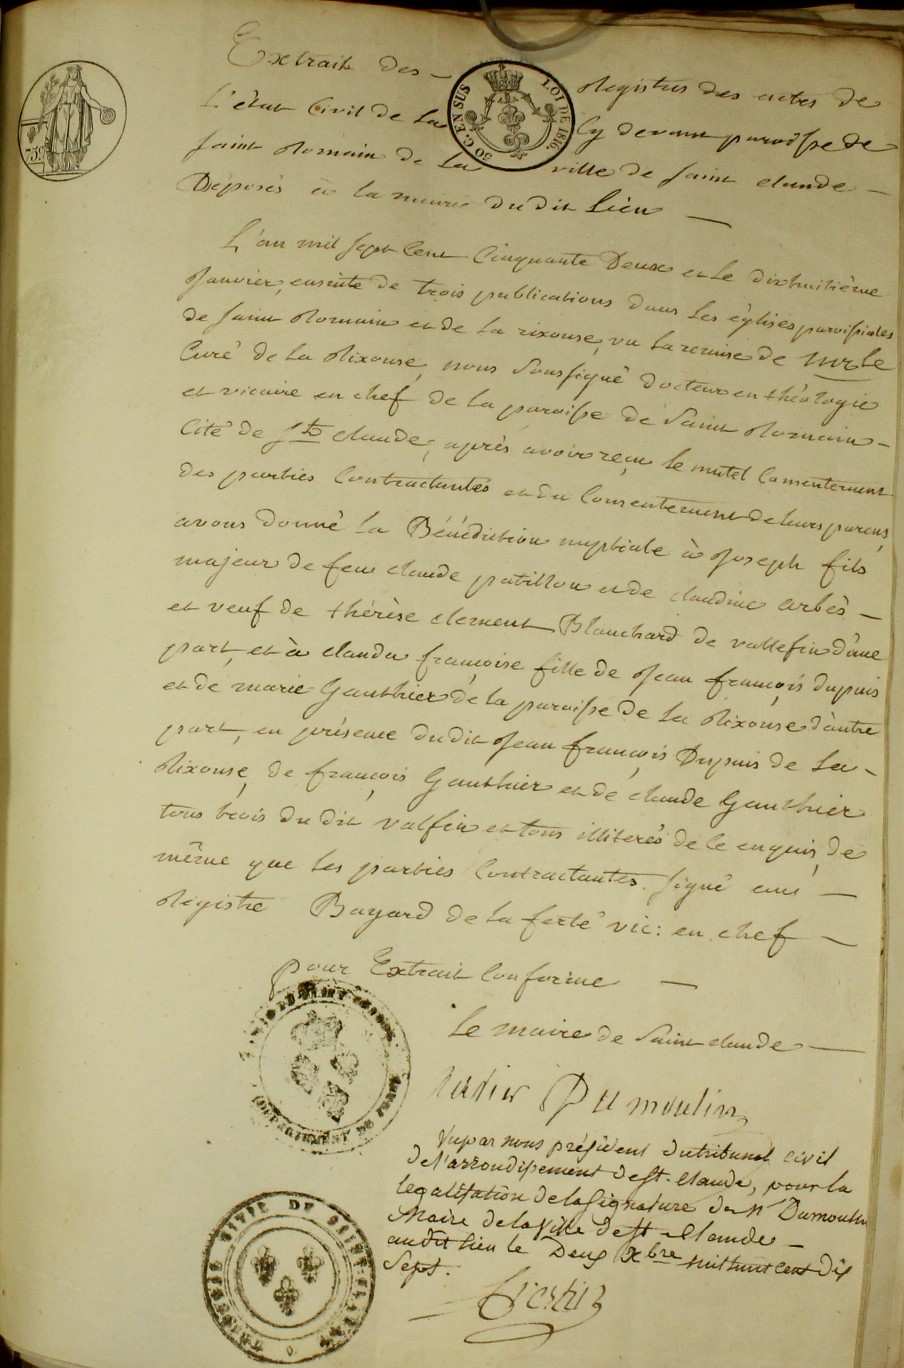 Extrait des – Registres des actes de
L'état Civil de La Cy devant paroisse de
saint Romain de La ville de saint claude –
Déposés à la mairie dudit Lieu –
50 C. EN SUS
LOI DE 1816
L'an mil sept Cent Cinquante Deux et Le dixhuitième
Janvier, ensuite de trois publications dans Les églises paroissiales
de saint Romain et de La rixouse, vu La remise de mr Le
Curé de La Rixouse, nous soussigné docteur en théologie
et vicaire en chef de La paroisse de Saint Romain –
Cité de st claude, après avoir reçu Le mutel Consentement
des parties Contractantes et du Consentement de Leurs parens,
avons donné La Bénédiction nuptiale à Joseph fils
majeur de feu claude patillon et de claudine arbés –
et veuf de thérèse clement Blanchard de vallefin d'une
part, et à clauda françoise fille de Jean françois dupuis
et de marie Gauthier de La paroisse de La Rixouse d'autre
part, en présence dudit Jean françois Dupuis de La –
Rixouse, de françois Gauthier et de claude Gauthier
tous trois du dit valfin et tous illiterés de ce enquis, de
même que Les parties Contractantes. signé au –
Registre Bayard de La ferté vic: en chef –
pour Extrait Conforme –
Le maire de Saint claude –
Dumoulin
DEPARTEMENT DU JURA
Vu par nous président du tribunal civil
de l'arrondissement de st. Claude, pour la
legalisation de la signature de Mr Dumoulin
Maire de la ville de st Claude –
audit lieu le Deux Xbre mil huit cent dix
Sept.